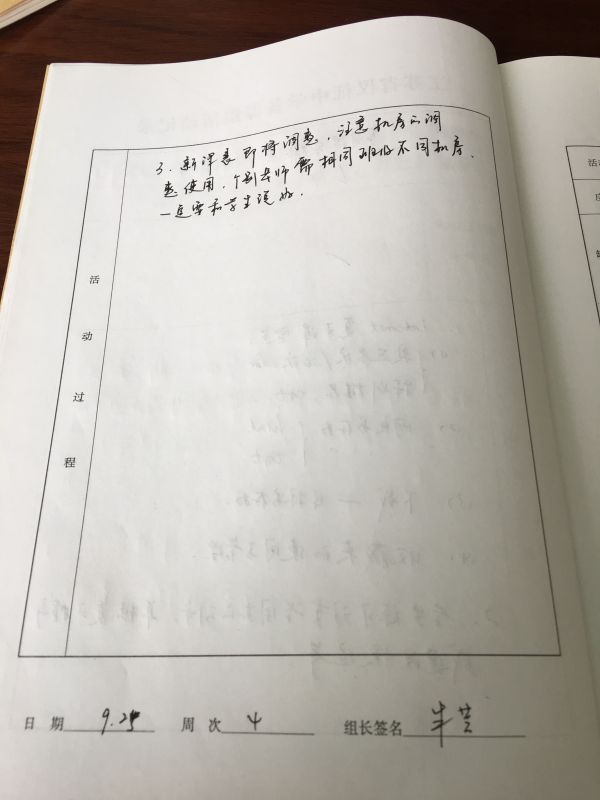 3. 新课表即将调整，注意机房的调
整使用，个别老师需相同班级不同机房，
一定要和学生说好．
活动过程
日 期 9.25 周 次 4 组长签名